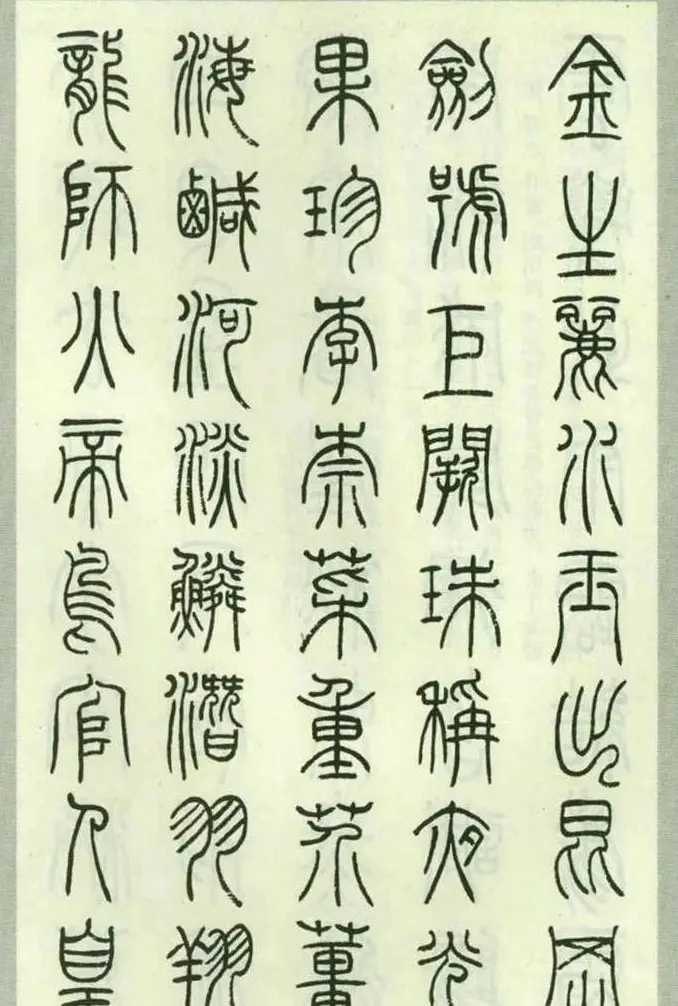 金生麗水玉出昆岡
劍號巨闕珠稱夜光
果珍李柰菜重芥薑
海鹹河淡鱗潛羽翔
龍師火帝鳥官人皇